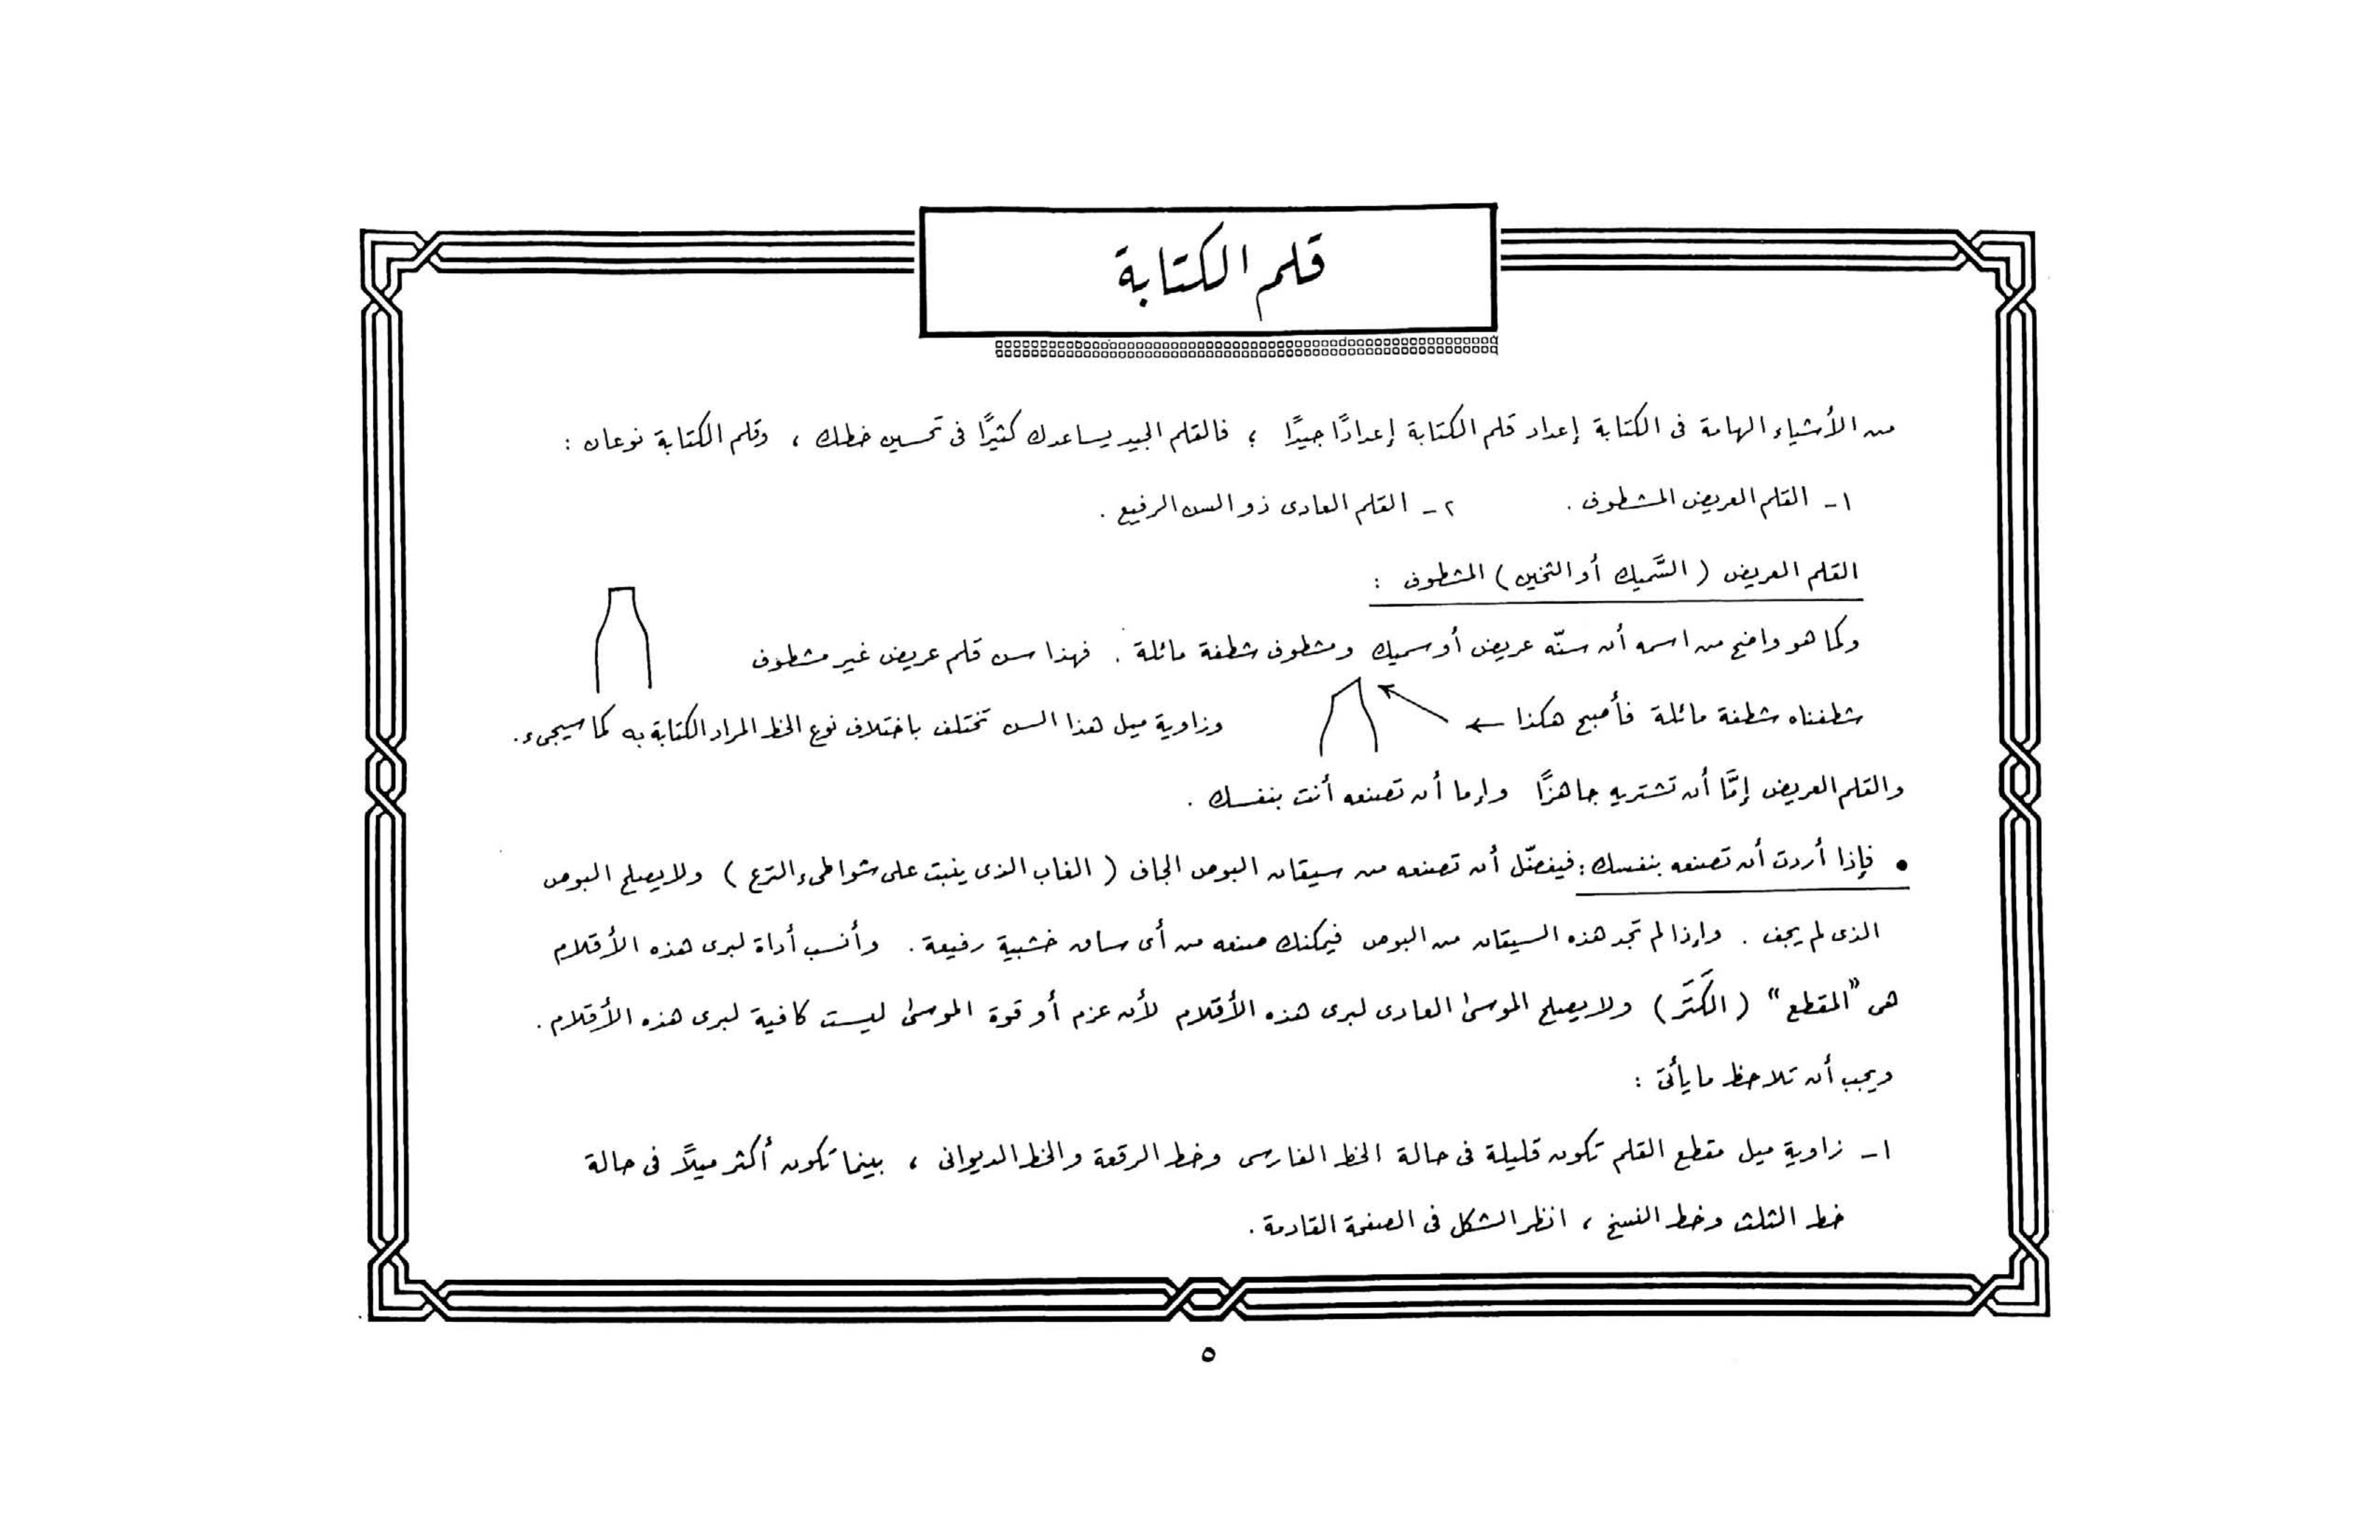 قلم الكتابة
من الأشياء الهامة فى الكتابة إعداد قلم الكتابة إعدادًا جيدًا ؛ فالقلم الجيد يساعدك كثيرًا فى تحسين خطك ، وقلم الكتابة نوعان :
١- القلم العريض المشطوف . ٢- القلم العادى ذو السن الرفيع .
القلم العريض ( السَّميك أو الثخين ) المشطوف :
وكما هو واضح من اسمه أن سنّه عريض أو سميك ومشطوف شطفة مائلة . فهذا سن قلم عريض غير مشطوف
شطفناه شطفة مائلة فأصبح هكذا ← وزاوية ميل هذا السن تختلف باختلاف نوع الخط المراد الكتابة به كما سيجىء .
والقلم العريض إمَّا أن تشتريه جاهزًا وإما أن تصنعه أنت بنفسك .
• فإذا أردت أن تصنعه بنفسك : فيفضّل أن تصنعه من سيقان البوص الجاف ( الغاب الذى ينبت على شواطىء الترع ) ولا يصلح البوص
الذى لم يجف . وإذا لم تجد هذه السيقان من البوص فيمكنك صنعه من أى ساق خشبية رفيعة . وأنسب أداة لبرى هذه الأقلام
هى "المقطع" ( الكَتَر ) ولا يصلح الموسى العادى لبرى هذه الأقلام لأن عزم أو قوة الموسى ليست كافية لبرى هذه الأقلام .
ويجب أن تلاحظ ما يأتى :
١- زاوية ميل مقطع القلم تكون قليلة فى حالة الخط الفارسى وخط الرقعة والخط الديوانى ، بينما تكون أكثر ميلاً فى حالة
خط الثلث وخط النسخ ، انظر الشكل فى الصفحة القادمة .
٥